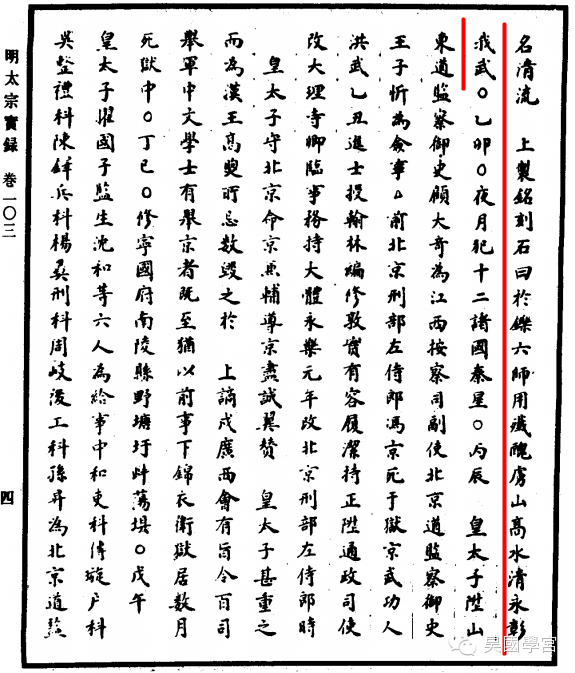 名清流　上製銘刻石曰於鑠六師用殲醜虜山高水清永彰
我武○乙卯○夜月犯十二諸國秦星○丙辰　皇太子陞山
東道監察御史顧大奇為江西按察司副使北京道監察御史
王子忻為僉事△前北京刑部左侍郎馮京死于獄京武功人
洪武乙丑進士授翰林編修敦實有容履潔持正陞通政司使
改大理寺卿臨事務持大體永樂元年改北京刑部左侍郎時
皇太子守北京命京兼輔導京盡誠翼贊　皇太子甚重之
而為漢王高煦所忌數毀之於　上謫戍廣西會有旨令百司
舉軍中文學士有舉京者既至猶以前事下錦衣衛獄居數月
死獄中○丁巳○修寧國府南陵縣野塘圩艸蕩堤○戊午
皇太子擢國子監生沈和等六人為給事中和吏科傅璇戶科
吳整禮科陳兵科楊刑科周岐後工科孫昇為北京道監
明太宗實録　卷一〇三
四
吴國學宮